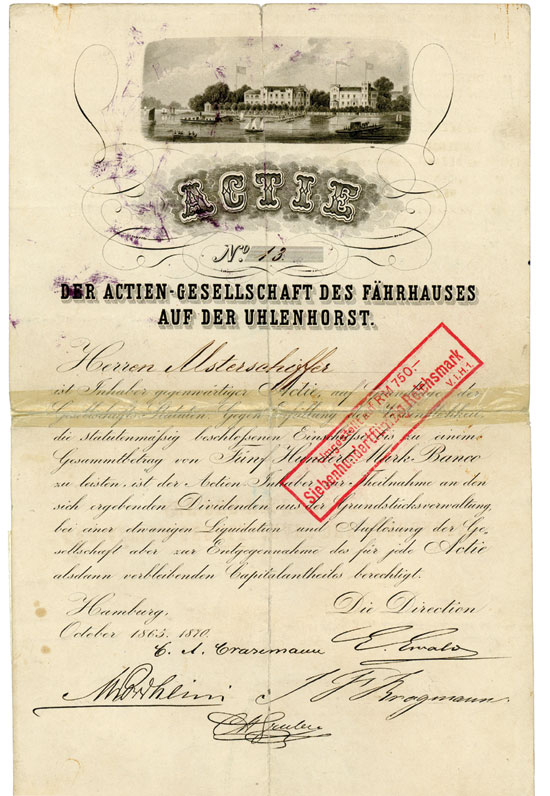 ACTIE
No. 13.
DER ACTIEN-GESELLSCHAFT DES FÄHRHAUSES
AUF DER UHLENHORST.
Herren Alsterschiffer
ist Inhaber gegenwärtiger Actie, auf der
Gesellschafts-Statuten. Gegen
die statutenmäßig beschlossenen Einschüsse bis zu einem
Gesammtbetrag von Fünf Hundert Mark Banco
zu leisten, ist der Actien Inhaber zur Theilnahme an den
sich ergebenden Dividenden aus der Grundstücksverwaltung,
bei einer etwanigen Liquidation und Auflösung der Ge-
sellschaft aber zur Entgegennahme des für jede Actie
alsdann verbleibenden Capitalantheiles berechtigt.
Hamburg, Die Direction
October 1865. 1870.
E. Ewald
J F Brogmann
Umgestellt auf RM 750.-
Siebenhundertfünfzig Reichsmark
V. I. H. 1.